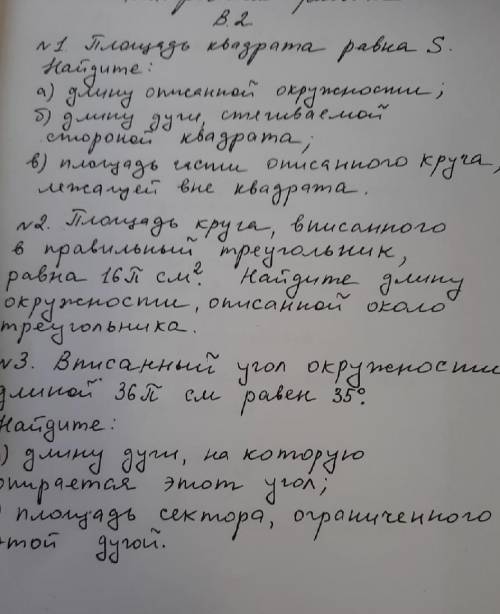 В.2
№1 Площадь квадрата равна S.
Найдите:
а) длину описанной окружности;
б) длину дуги, стягиваемой
стороной квадрата;
в) площадь части описанного круга,
лежащей вне квадрата.
№2. Площадь круга, вписанного
в правильный треугольник,
равна 16π см². Найдите длину
окружности, описанной около
треугольника.
№3. Вписанный угол окружности
длиной 36π см равен 35°.
Найдите:
) длину дуги, на которую
опирается этот угол;
) площадь сектора, ограниченного
этой дугой.